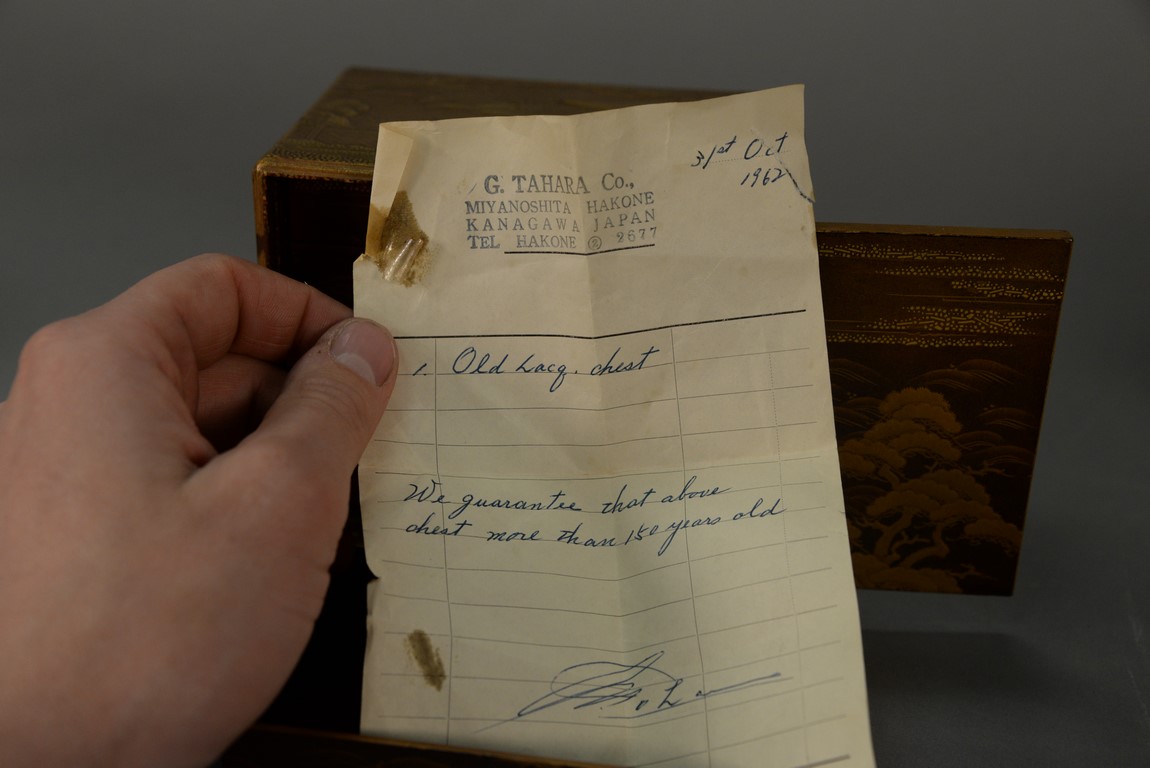 31st Oct
1962
G. TAHARA Co.,
MIYANOSHITA HAKONE
KANAGAWA JAPAN
TEL HAKONE 2677
1. Old Lacq. chest
We guarantee that above
chest more than 150 years old